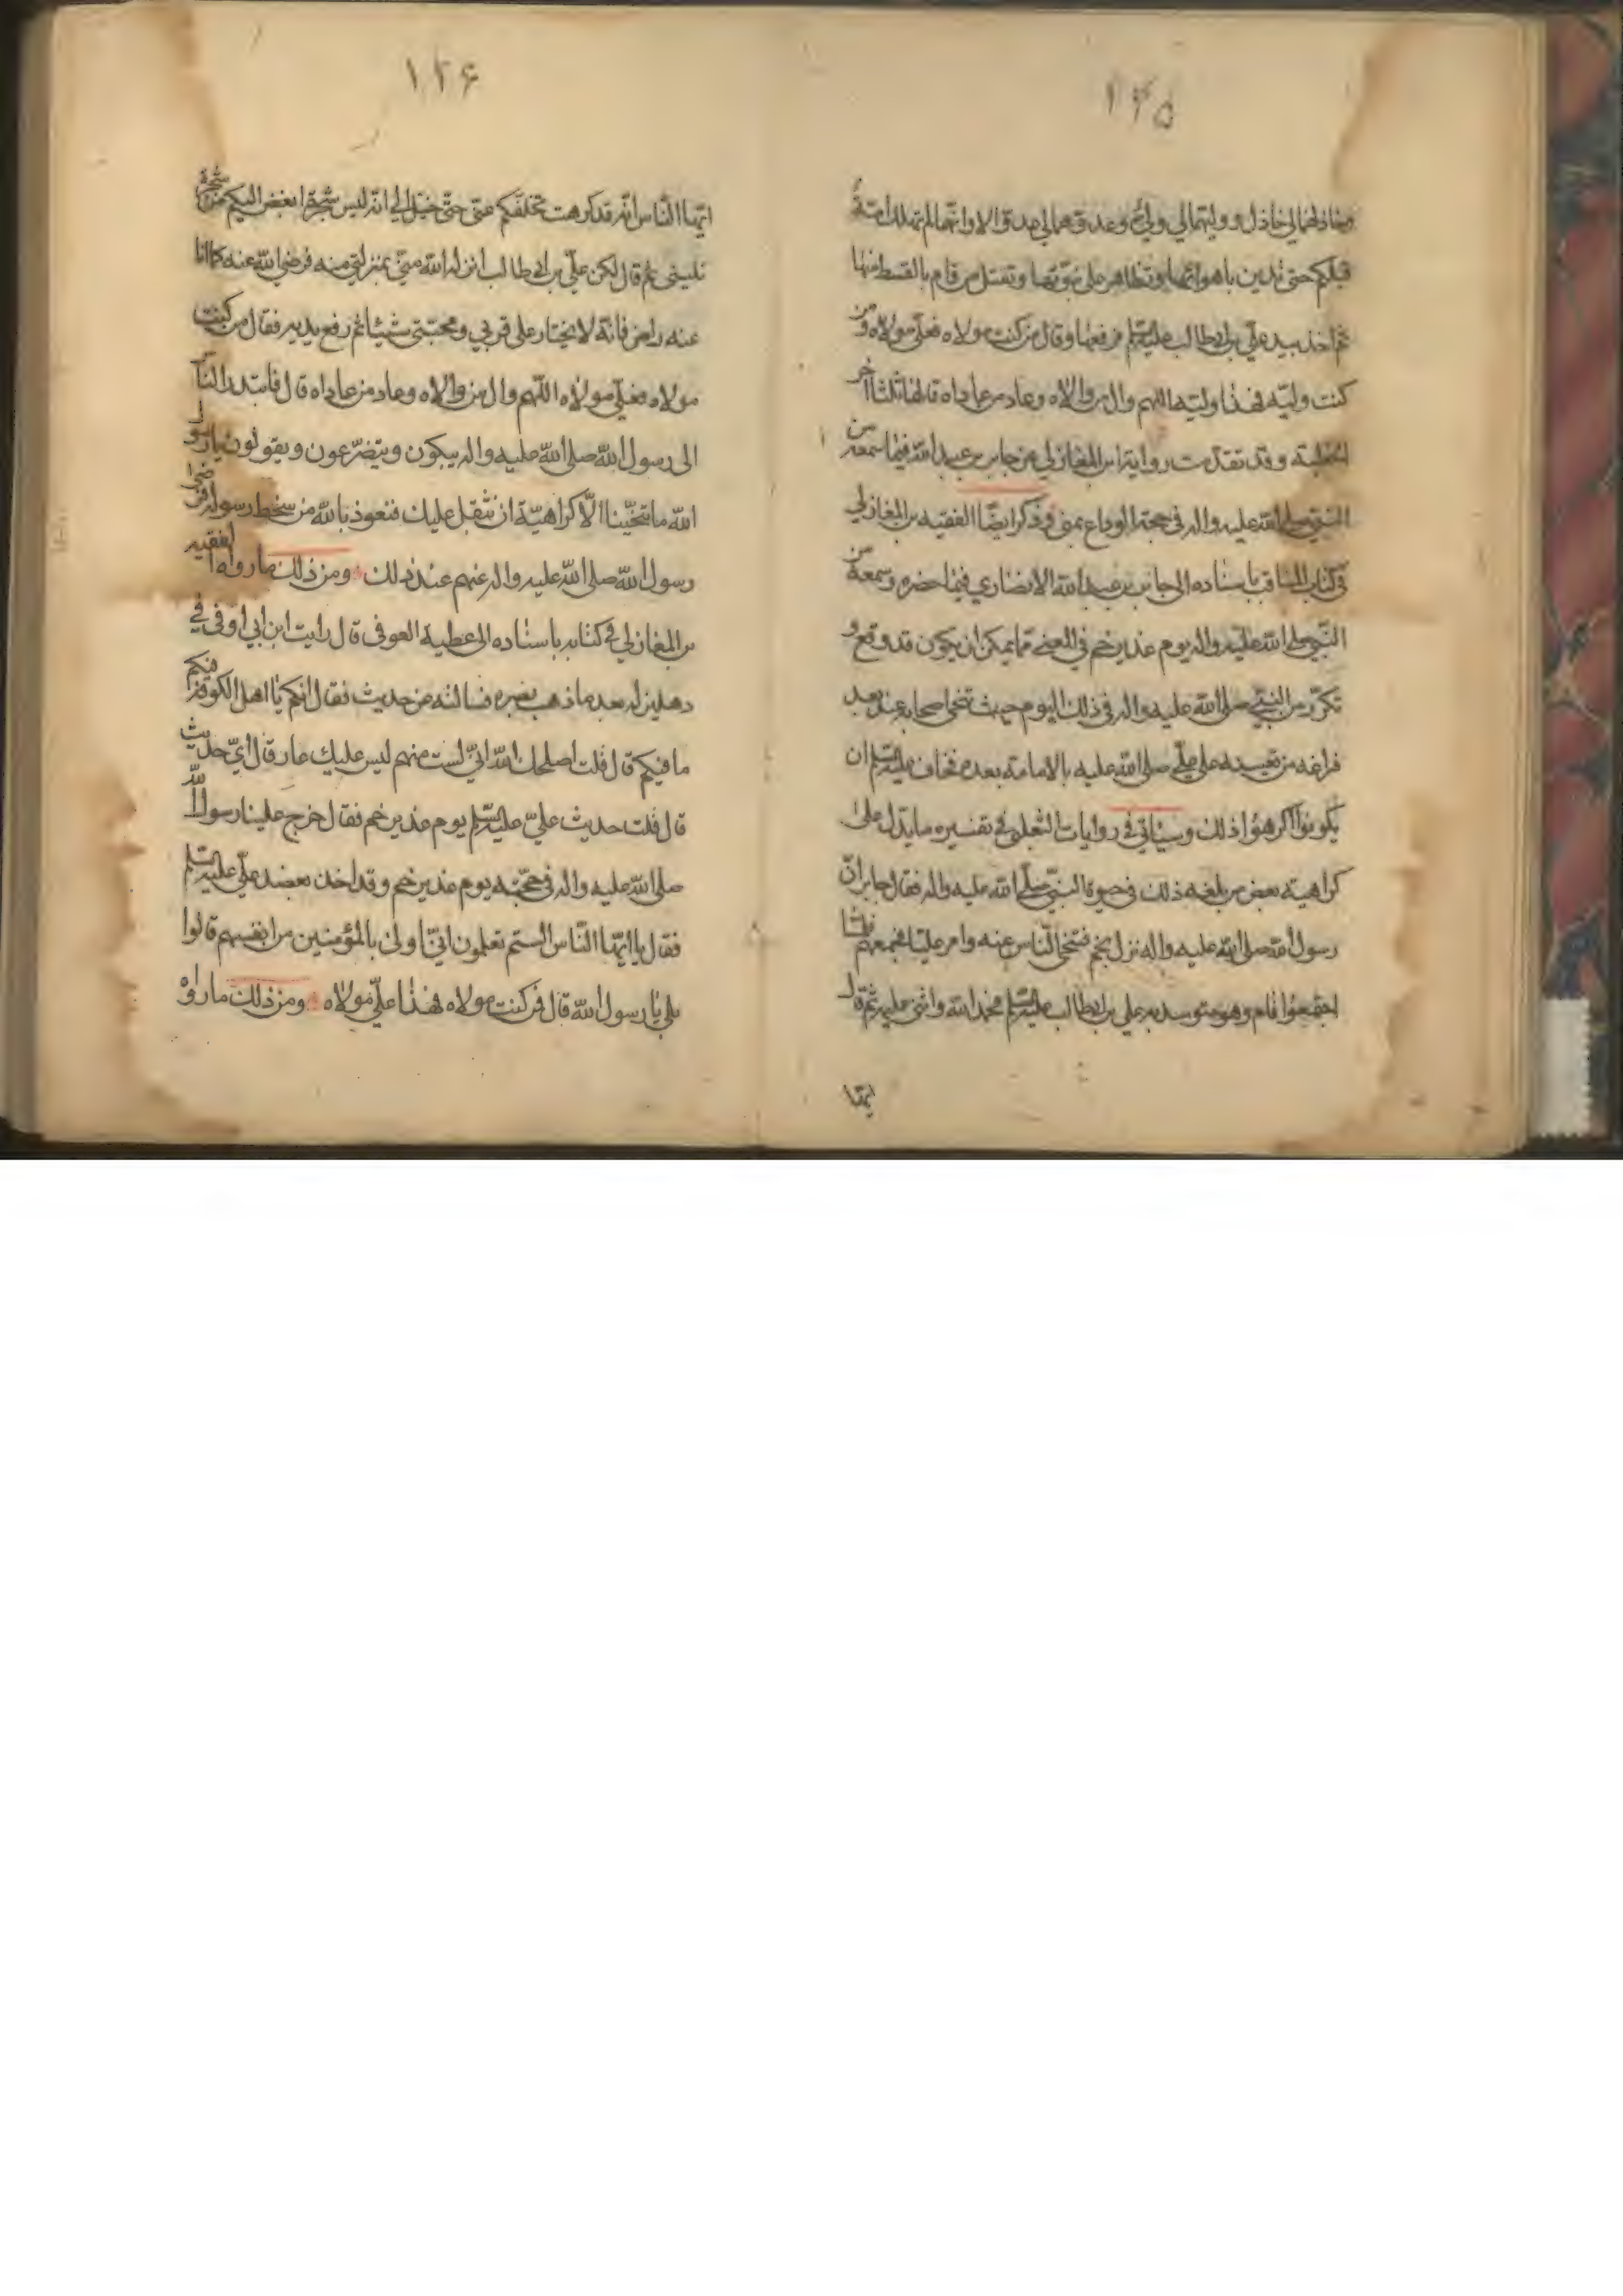 ١٢٥
وخاذلهما لي خاذل ووليهما لي ولي وعدوهما لي عدو الا وانها لم تهلك امة
قبلكم حتى تدين باهوائها وتظاهر على نبوتها وتقتل من قام بالقسط منها
ثم اخذ بيد علي بن ابيطالب عليه السلم فرفعها وقال من كنت مولاه فعلي مولاه ومن
كنت وليه فهذا وليه اللهم وال من والاه وعاد من عاداه قالها ثلثا آخر
الخطبة وقد تقدمت رواية ابن المغازلي عن جابر بن عبد الله فيما سمعه من
النبي صلى الله عليه واله في حجة الوداع بمنى وذكر ايضا الفقيه بن المغازلي
في كتاب المناقب باسناده الى جابر بن عبد الله الانصاري فيما حضره وسمعه من
النبي صلى الله عليه واله يوم غدير خم في المعنى مما يمكن ان يكون قد وقع و
تكرر من النبي صلى الله عليه واله في ذلك اليوم حيث تنحى صحابه عنه بعد
فراغه من تعيينه على علي صلى الله عليه بالامامة بعده فخاف عليه السلم ان
يكونوا اكرهوا ذلك وسياتي في روايات الثعلبي في تفسيره ما يدل على
كراهية بعض من بلغه ذلك في حيوة النبي صلى الله عليه واله فقال جابر ان
رسول الله صلى الله عليه واله نزل بخم فتنحى الناس عنه وامر عليا فجمعهم فلما
اجتمعوا قام وهو متوسد يد علي بن ابيطالب عليه السلم فحمد الله واثنى عليه ثم قال
ايها
١٢۶
ايها الناس انه قد كرهت تخلفكم عني حتى خيل الي انه ليس شجرة ابغض اليكم من شجرة
تليني ثم قال لكن علي بن ابيطالب انزله الله مني بمنزلتي منه فرضي الله عنه كما انا
عنه راض فانه لا يختار على قربي ومحبتي شيئا ثم رفع يديه فقال من كنت
مولاه فعلي مولاه اللهم وال من والاه وعاد من عاداه قال فابتدر الناس
الى رسول الله صلى الله عليه واله يبكون ويتضرعون ويقولون يا رسول
الله ما تنحينا الا كراهية ان نثقل عليك فنعوذ بالله من سخط رسوله فرضى
رسول الله صلى الله عليه واله عنهم عند ذلك ومن ذلك ما رواه الفقيه
بن المغازلي في كتابه باسناده الى عطية العوفي قال رايت ابن ابي اوفى في
دهليز له بعد ما ذهب بصره فسالته عن حديث فقال انكم يا اهل الكوفة فيكم
ما فيكم قال قلت اصلحك الله اني لست منهم ليس عليك عار قال اي حديث
قال قلت حديث علي عليه السلم يوم غدير خم فقال خرج علينا رسول الله
صلى الله عليه واله في حجته يوم غدير خم وقد اخذ بعضد علي عليه السلم
فقال يا ايها الناس الستم تعلمون اني اولى بالمؤمنين من انفسهم قالوا
بلى يا رسول الله قال فمن كنت مولاه فهذا علي مولاه ومن ذلك ما رواه